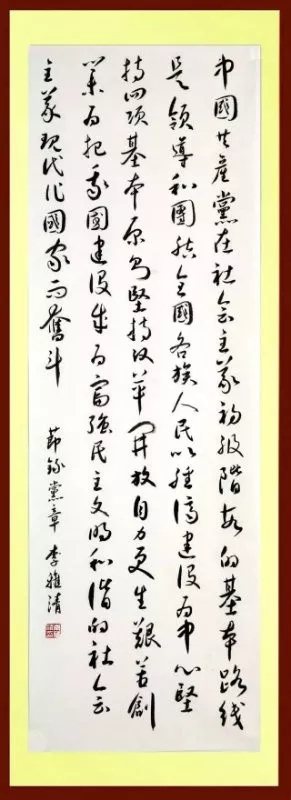 中國共產黨在社会主義初級階段的基本路线
是領導和團結全國各族人民以經濟建設为中心堅
持四項基本原則堅持改革開放自力更生艱苦創
業为把我國建設成为富強民主文明和谐的社会
主義现代化國家而奮斗
節錄黨章 李雅清